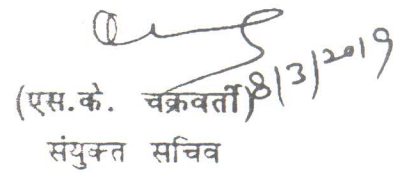 (एस.के. चक्रवर्ती) 8/3/2019
संयुक्त सचिव